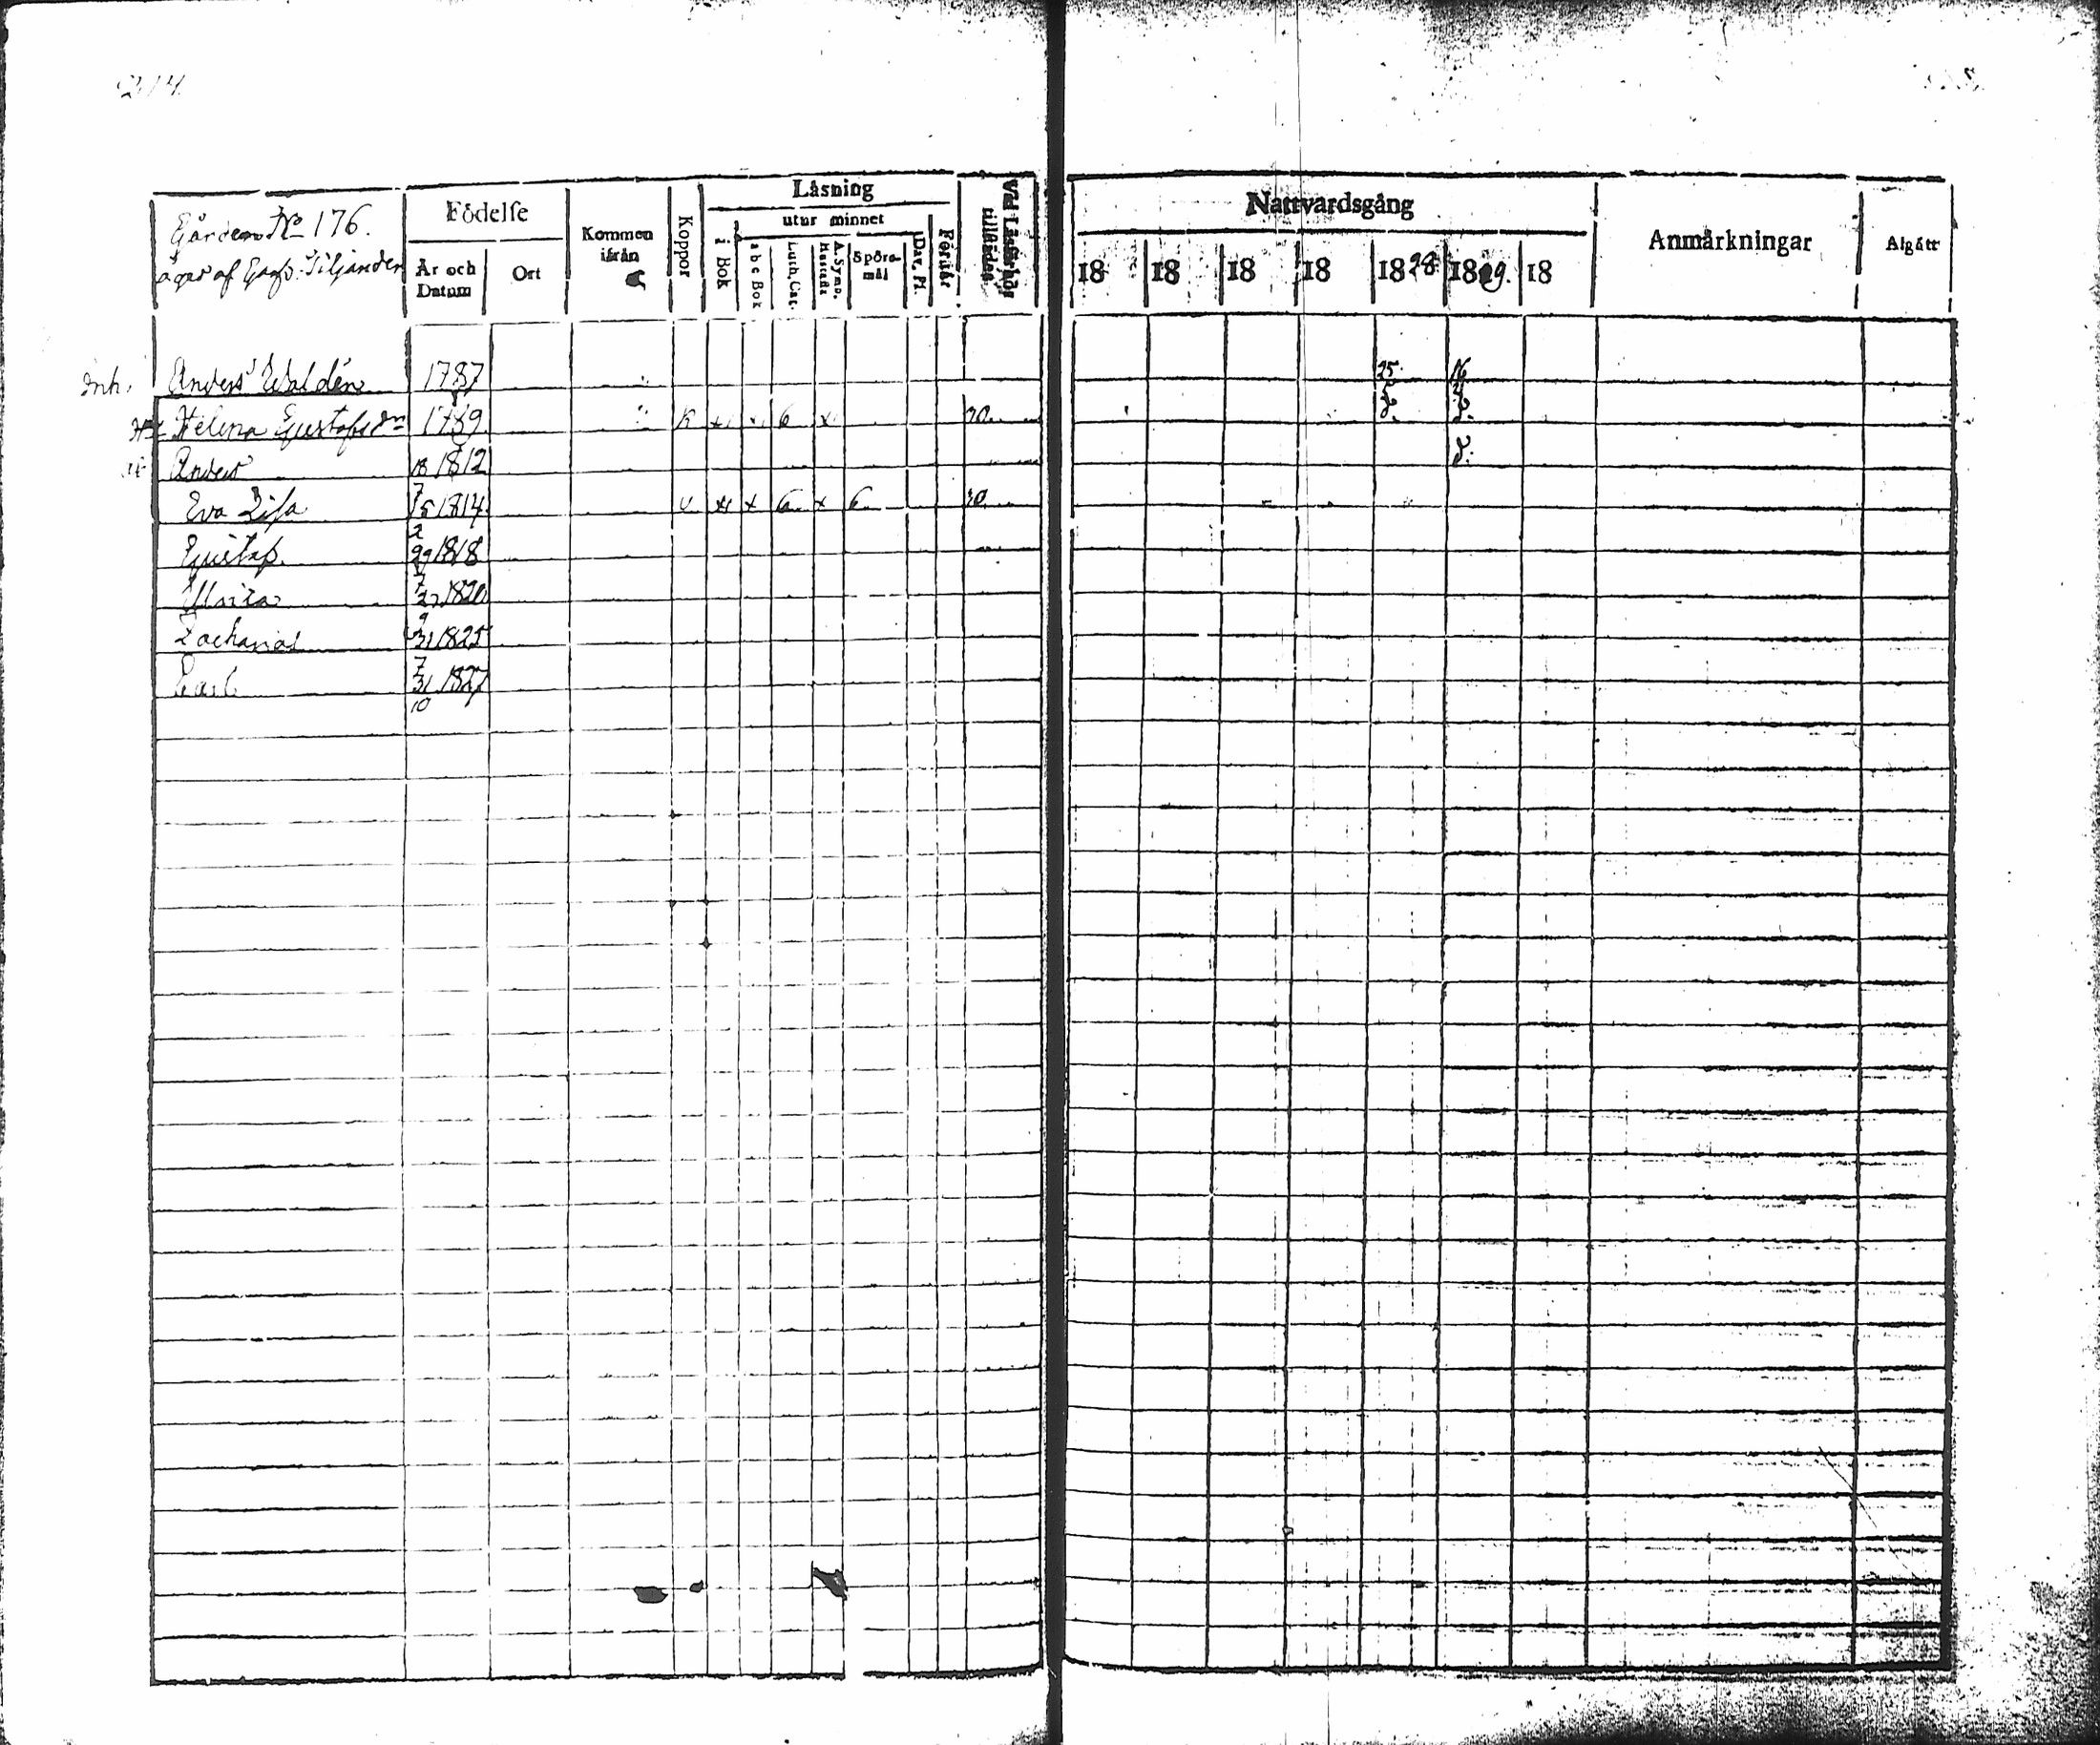 214
Gården No 176.
äges af Tiljander
Födelse
År och Datum
Ort
Kommen ifrån
Koppor
Läsning
i Bok
utur minnet
a b c Bok
Luth. Cat.
A. Symb. Hustafla
Spörs-mål
Dav. Ps.
Förstår
Vid Läsförhör tillstädes
Nattvardsgång
18 18 18 18 1828 1829. 18
Anmärkningar
Afgått
Inh. Anders Waldén 1787 25 16
H. Helena Gustafsdr 1789 R x 6 x 30
Anders 18 1812
7
Eva Lisa 15 1814 v x x 6 x 6 30
2
Gustaf 29 1818
7
Ulrica 27 1820
9
Zacharias 31 1825
7
Carl 31 1827
10